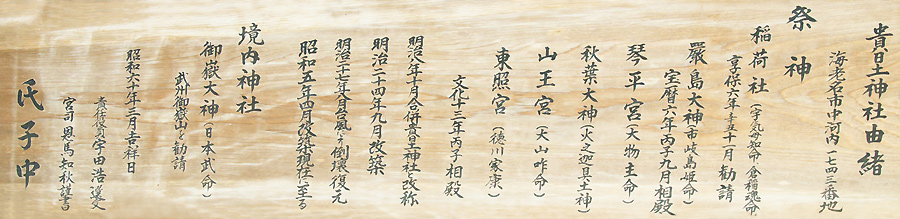 貴日土神社由緒
海老名市中河内一七四三番地
祭神
稲荷社(宇気知命・倉稲魂命)
享保六年辛丑十一月勧請
厳島大神(市岐島姫命)
宝暦六年丙子九月相殿
琴平宮(大物主命)
山王宮(大山咋命)
秋葉大神(火之迦具土神)
東照宮(徳川家康)
文化十三年丙子相殿
明治八年十月合併貴日土神社と改称
明治二十四年九月改築
明治三十七年八月台風にて倒壊復元
昭和五年四月改築現在に至る
境内神社
御嶽大神(日本武命)
武州御嶽山より勧請
昭和六十年三月吉祥日
責任役員宇田浩選文
宮司恩馬知秋謹書
氏子中